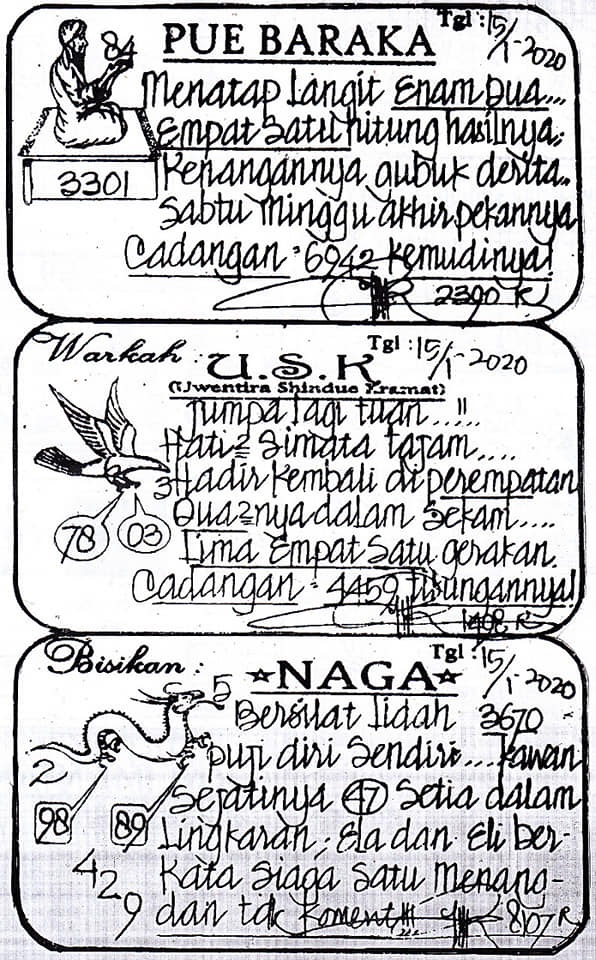 Tgl : 15/1-2020
PUE BARAKA
84
Menatap langit Enam Dua...
Empat Satu hitung hasilnya;
3301
Kenangannya gubuk derita..
Sabtu Minggu akhir pekannya
Cadangan = 6942 kemudinya!
2390 K
Warkah : U.S.K
Tgl : 15/1-2020
(Uwentira Shindue Kramat)
Jumpa lagi tuan.....!!
Hati2 Simata tajam.....
3
Hadir kembali di perempatan
Dua2nya dalam Sekam....
78 03
Lima Empat Satu gerakan.
Cadangan = 4459 
1498 K
Bisikan :
NAGA
Tgl : 15/1-2020
5
Bersilat lidah 3670
Puji diri Sendiri... Kawan
2
Sejatinya 47 Setia dalam
98 89
Lingkaran; Ela dan Eli ber-
42
Kata Siaga Satu Menang-
9
dan tak Koment!!!
8107 K